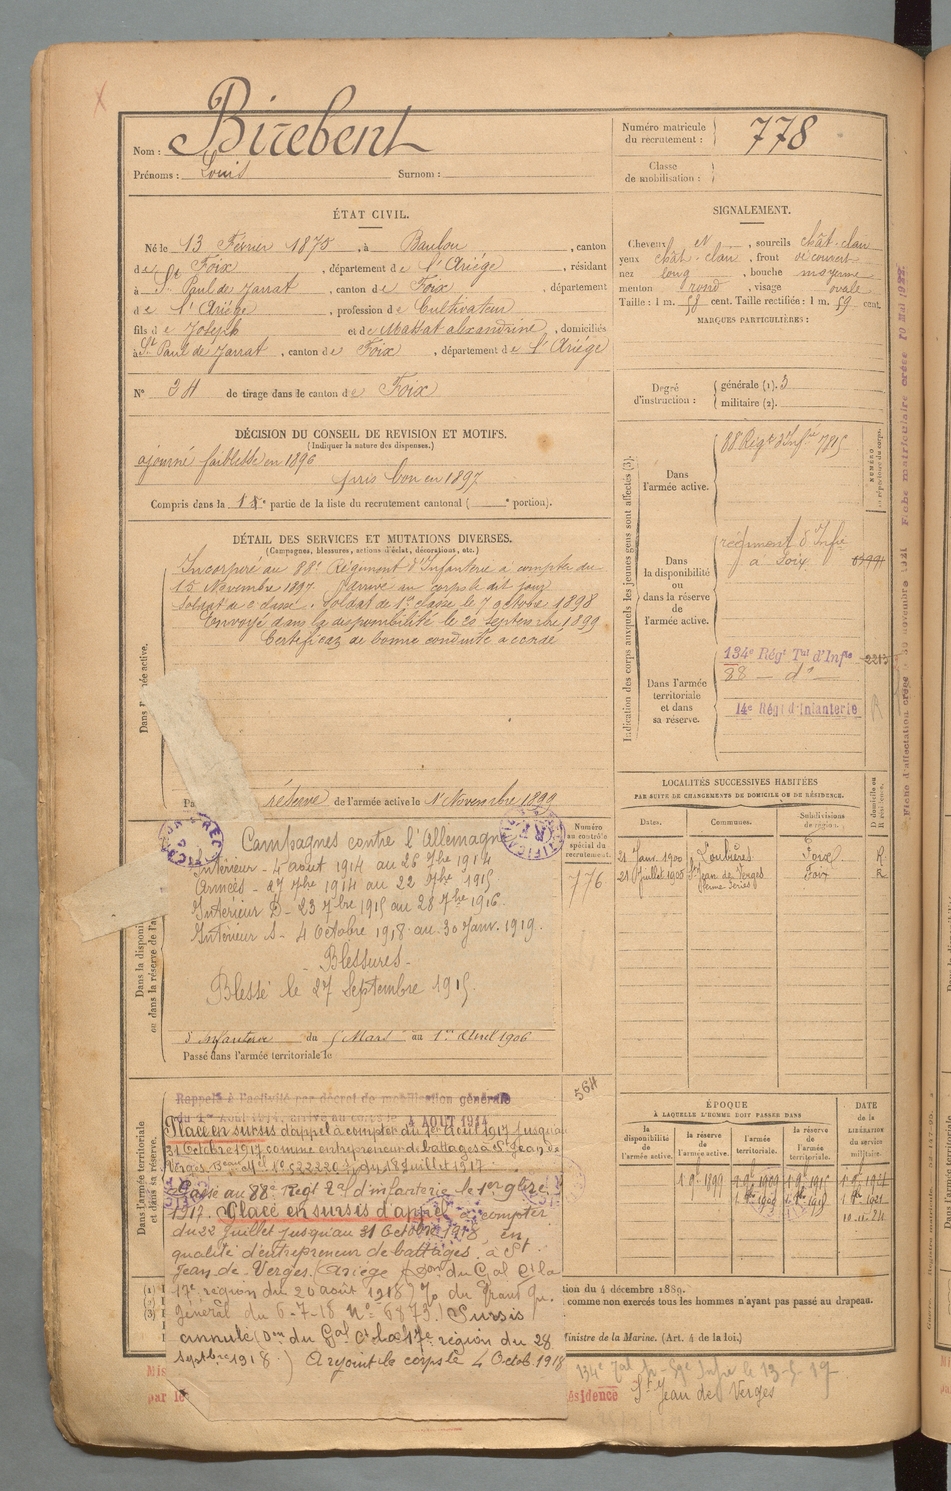 Nom : Birebent
Prénoms : Louis Surnom :
Numéro matricule du recrutement : 778
Classe de mobilisation :
ÉTAT CIVIL.
Né le 13 Février 1875, à Baulou, canton
de Foix, département de l'Ariége, résidant
à St Paul de Jarrat, canton de Foix, département
de l'Ariége, profession de Cultivateur
fils de Joseph et de Massat alexandrine, domiciliés
à St Paul de Jarrat, canton de Foix, département de l'Ariége
N° 34 de tirage dans le canton de Foix
SIGNALEMENT.
Cheveux N, sourcils chât-clair
yeux chât-clair, front découvert
nez long, bouche moyenne
menton rond, visage ovale
Taille : 1 m. 58 cent. Taille rectifiée : 1 m. 59 cent.
MARQUES PARTICULIÈRES :
Degré d'instruction :
générale (1). 3
militaire (2).
DÉCISION DU CONSEIL DE REVISION ET MOTIFS.
(Indiquer la nature des dispenses.)
ajourné faiblesse en 1896
pris bon en 1897
Compris dans la partie de la liste du recrutement cantonal ( portion).
DÉTAIL DES SERVICES ET MUTATIONS DIVERSES.
(Campagnes, blessures, actions d'éclat, décorations, etc.)
Incorporé au 88e Régiment d'Infanterie à compter du
15 Novembre 1897. arrivé au corps le dit jour
soldat de 2e classe. Soldat de 1e classe le 7 octobre 1898
Envoyé dans la disponibilité le 20 septembre 1899
Certificat de bonne conduite accordé
réserve de l'armée active le 1 Novembre 1899
Campagnes contre l'Allemagne
Intérieur - 4 août 1914 au 26 7bre 1914
Armées - 27 7bre 1914 au 22 7bre 1915
Intérieur B - 23 7bre 1915 au 28 7bre 1916.
Intérieur S - 4 Octobre 1918 au 30 Janv. 1919.
Blessures -
Blessé le 27 Septembre 1915
d'Infanterie du 5 Mars au 1er Avril 1906
Passé dans l'armée territoriale le
Rappelé à l'activité par décret de mobilisation générale
du 1er Août 1914, arrivé au corps le 4 AOUT 1914
Placé en sursis d'appel à compter du 1er Aout 1917 jusqu'au
31 Octobre 1917 comme entrepreneur de battages à St Jean de
Verges. du 18 Juillet 1917
Passé au 88e Régt Tal d'infanterie le 1er 8bre
1917. Placé en sursis d'appel à compter
du 22 Juillet jusqu'au 31 Octobre 1918, en
qualité d'entrepreneur de battages, à St
Jean de Verges (Ariège) Don du Gal Ct la
17e région du 20 août 1918) % du Grand Qu.
général du 6-7-18 N° 6873. Sursis
annulé (Don du Gal Ct la 17e région du 28
septbre 1918) A rejoint le corps le 4 Octob. 1918
Dans l'armée active.
Dans l'armée territoriale et dans sa réserve.
Numéro au contrôle spécial du recrutement.
776
564
Indication des corps auxquels les jeunes gens sont affectés (3).
Dans l'armée active.
88 Régt d'Infie 7815
Dans la disponibilité ou dans la réserve de l'armée active.
régiment d'Infie
à Foix
Dans l'armée territoriale et dans sa réserve.
134e Régt Tal d'Infie
88 — do —
14e Régt d'Infanterie
R
NUMÉRO au répertoire du corps.
LOCALITÉS SUCCESSIVES HABITÉES
PAR SUITE DE CHANGEMENTS DE DOMICILE OU DE RÉSIDENCE.
Dates. Communes. Subdivisions de région. D domicile ou R résidence.
21 Janv. 1900 Loubières Foix R
21 Juillet 1905 St Jean de Verges Foix R
ÉPOQUE
À LAQUELLE L'HOMME DOIT PASSER DANS
la disponibilité de l'armée active. la réserve de l'armée active. l'armée territoriale. la réserve de l'armée territoriale.
DATE de la LIBÉRATION du service militaire.
tion du 4 décembre 1889.
comme non exercés tous les hommes n'ayant pas passé au drapeau.
Ministre de la Marine. (Art. 4 de la loi.)
St Jean de Verges
ésidence
Mis
par le
Fiche matriculaire créée 10 Mai 1922.
Fiche d'affectation créée novembre 1921